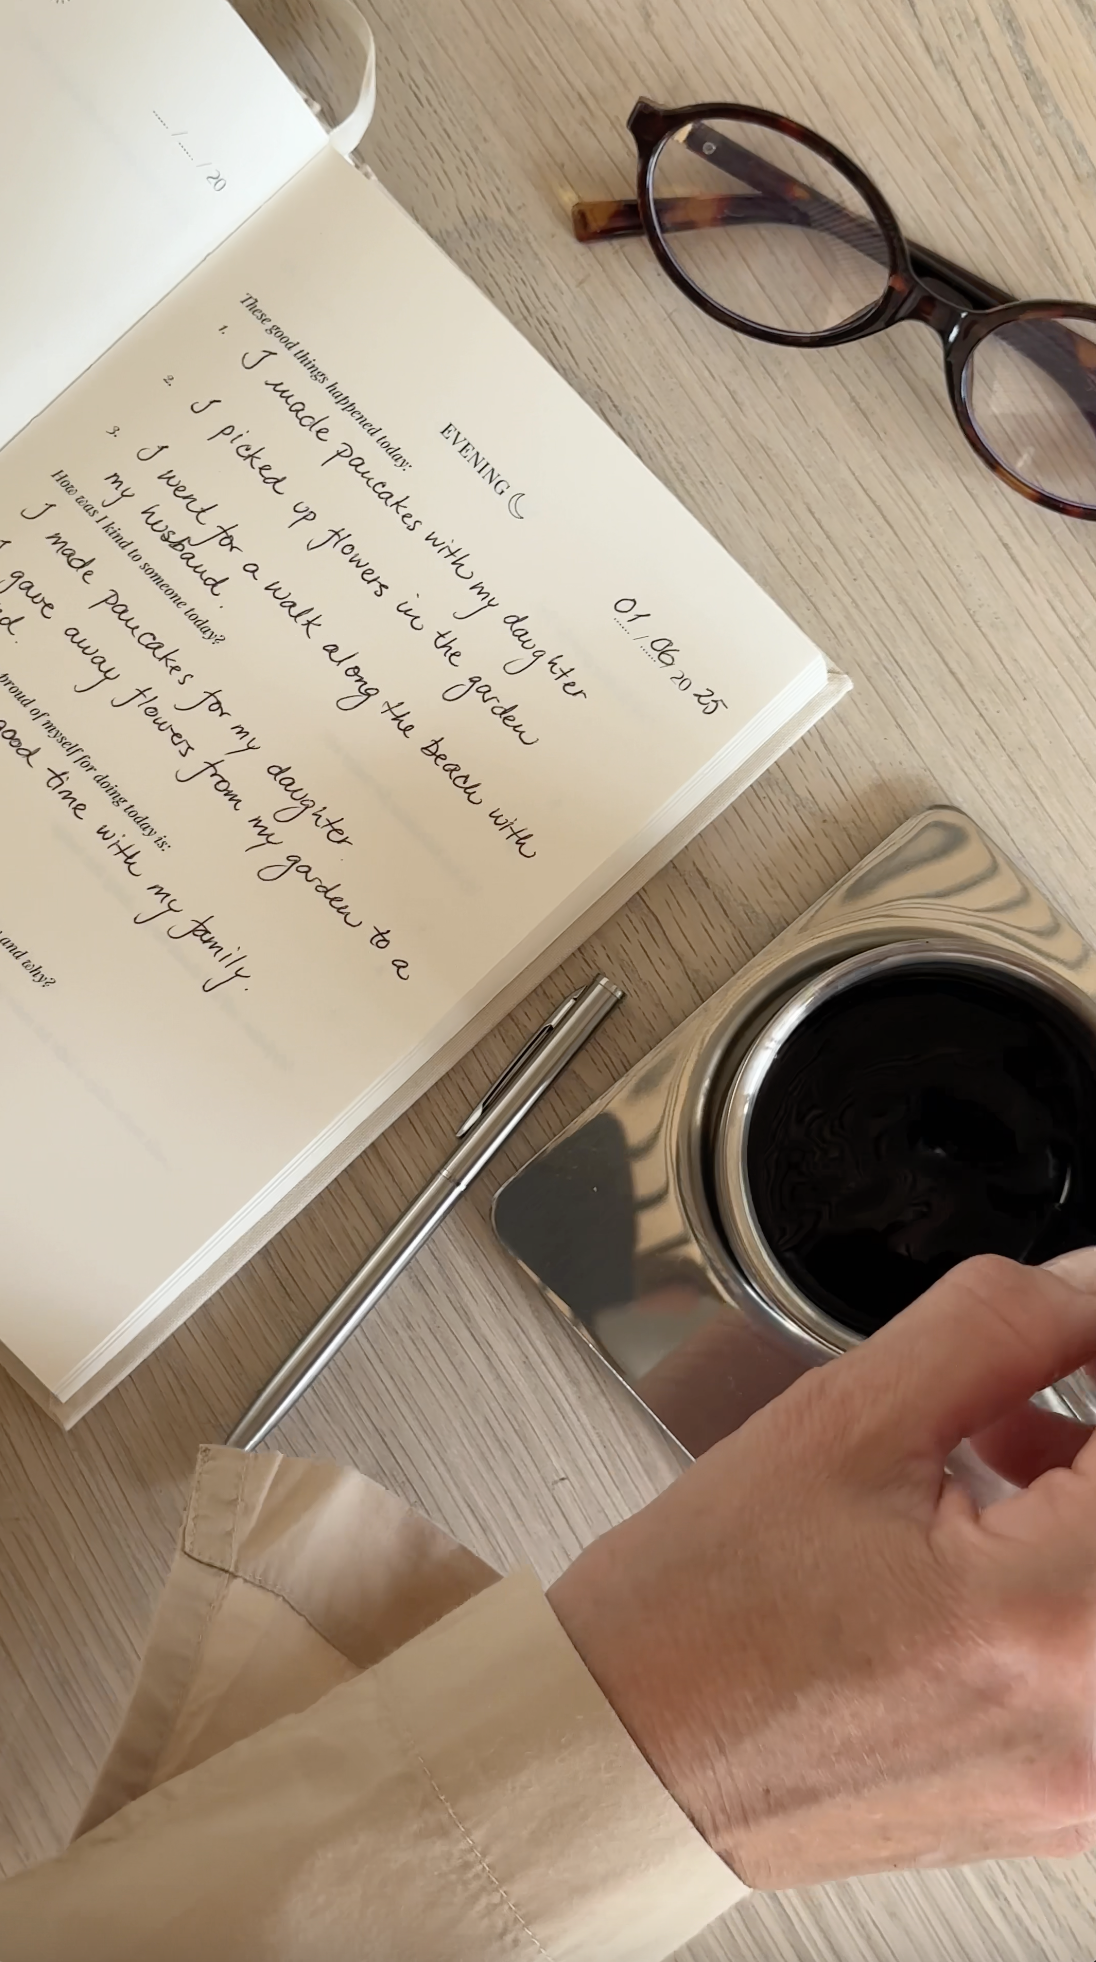 ..... / ..... / 20
01 / 06 / 20 25
EVENING
These good things happened today:
1. I made pancakes with my daughter
2. I picked up flowers in the garden
3. I went for a walk along the beach with
my husband.
How was I kind to someone today?
I made pancakes for my daughter.
I gave away flowers from my garden to a
proud of myself for doing today is:
good time with my family.
and why?